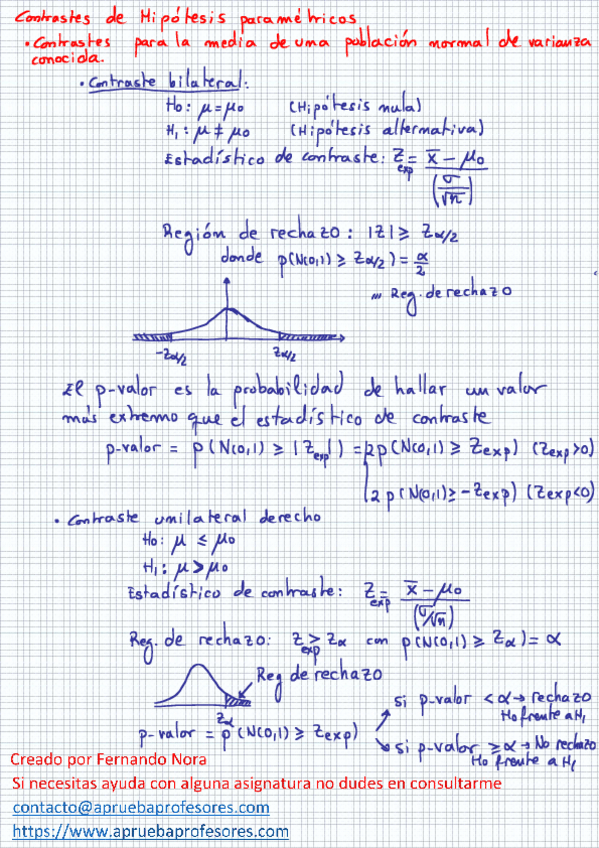 Contrastes de Hipótesis paramétricos
• Contrastes para la media de una población normal de varianza
conocida.
• Contraste bilateral:
H0: μ = μ0 (Hipótesis nula)
H1: μ ≠ μ0 (Hipótesis alternativa)
Estadístico de contraste: Zexp = (x̄ − μ0) / (σ/√n)
Región de rechazo: |Z| ≥ Zα/2
donde p(N(0,1) ≥ Zα/2) = α/2
Reg. de rechazo
-Zα/2 Zα/2
El p-valor es la probabilidad de hallar un valor
más extremo que el estadístico de contraste
p-valor = p(N(0,1) ≥ |Zexp|) = 2p(N(0,1) ≥ Zexp) (Zexp>0)
2p(N(0,1) ≥ -Zexp) (Zexp<0)
• Contraste unilateral derecho
H0: μ ≤ μ0
H1: μ > μ0
Estadístico de contraste: Zexp = (x̄ − μ0) / (σ/√n)
Reg. de rechazo: Zexp > Zα con p(N(0,1) ≥ Zα) = α
Reg de rechazo
Zα
si p-valor < α → rechazo
H0 frente a H1
p-valor = p(N(0,1) ≥ Zexp)
si p-valor ≥ α → No rechazo
H0 frente a H1
Creado por Fernando Nora
Si necesitas ayuda con alguna asignatura no dudes en consultarme
contacto@apruebaprofesores.com
https://www.apruebaprofesores.com